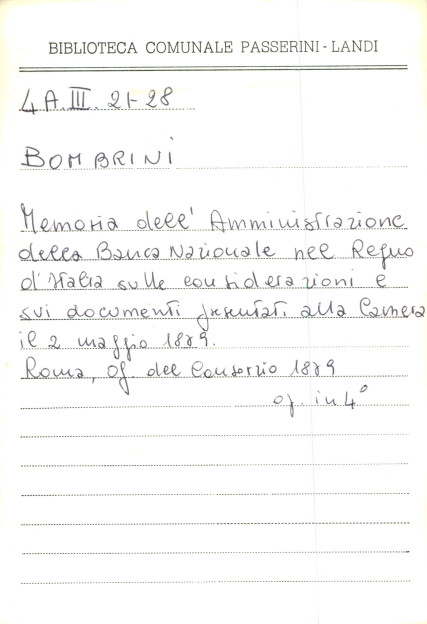 BIBLIOTECA COMUNALE PASSERINI - LANDI
4 A. III. 21-28
BOMBRINI
Memoria dell' Amministrazione
della Banca Nazionale nel Regno
d'Italia sulle considerazioni e
sui documenti presentati alla Camera
il 2 maggio 1879.
Roma, of. del Consorzio 1879
op. in 4°